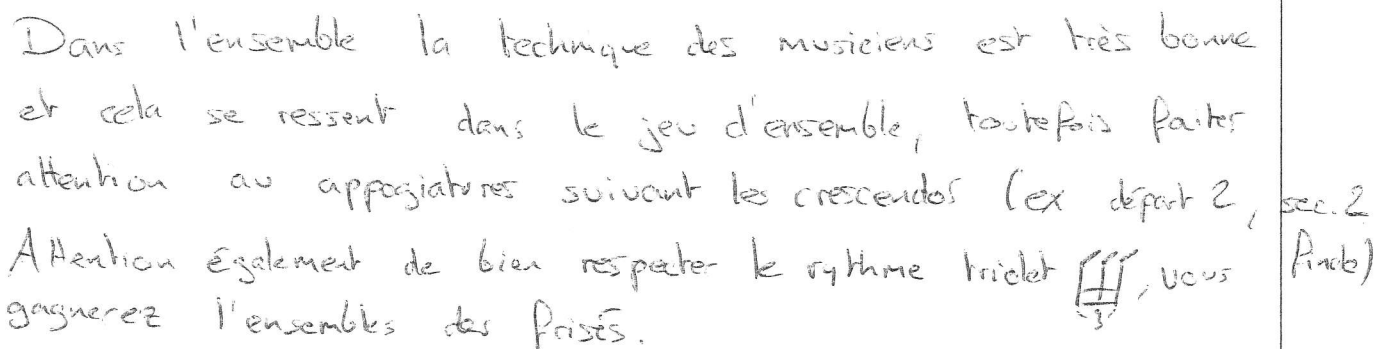 Dans l'ensemble la technique des musiciens est très bonne
et cela se ressent dans le jeu d'ensemble, toutefois faites
attention au appogiatures suivant les crescendos (ex départ 2, sec. 2
Attention également de bien respecter le rythme triolet 3, vous
gagnerez l'ensembles des frisés.